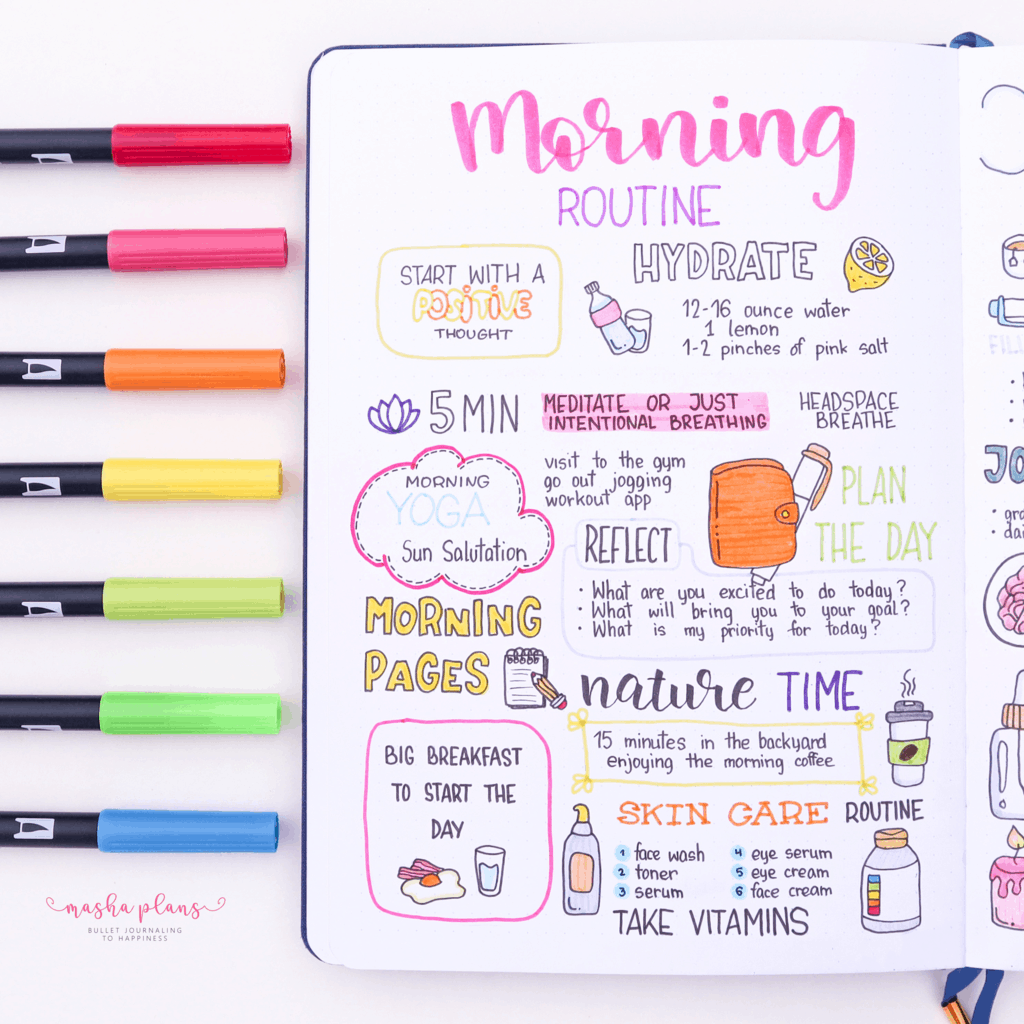 Morning
ROUTINE
START WITH A
POSITIVE
THOUGHT
HYDRATE
12-16 ounce water
1 lemon
1-2 pinches of pink salt
5 MIN
MEDITATE OR JUST
INTENTIONAL BREATHING
HEADSPACE
BREATHE
MORNING
YOGA
Sun Salutation
visit to the gym
go out jogging
workout app
PLAN
THE DAY
REFLECT
• What are you excited to do today?
• What will bring you to your goal?
• What is my priority for today?
MORNING
PAGES
nature TIME
15 minutes in the backyard
enjoying the morning coffee
BIG BREAKFAST
TO START THE
DAY
SKIN CARE ROUTINE
1 face wash
2 toner
3 serum
4 eye serum
5 eye cream
6 face cream
TAKE VITAMINS
masha plans
BULLET JOURNALING
TO HAPPINESS